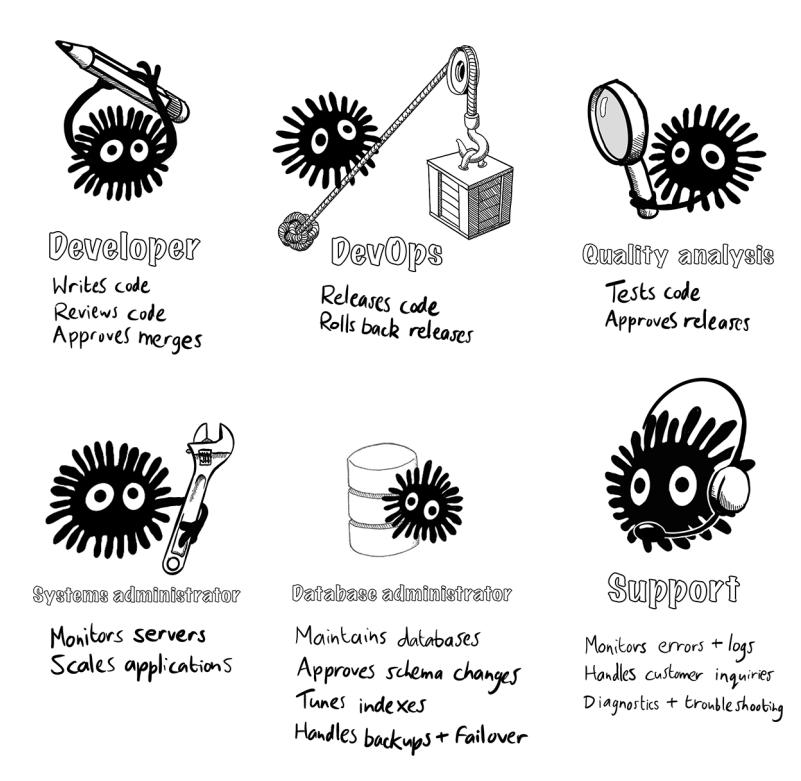 Developer
Writes code
Reviews code
Approves merges
DevOps
Releases code
Rolls back releases
Quality analysis
Tests code
Approves releases
Systems administrator
Monitors servers
Scales applications
Database administrator
Maintains databases
Approves schema changes
Tunes indexes
Handles backups + Failover
Support
Monitors errors + logs
Handles customer inquiries
Diagnostics + troubleshooting